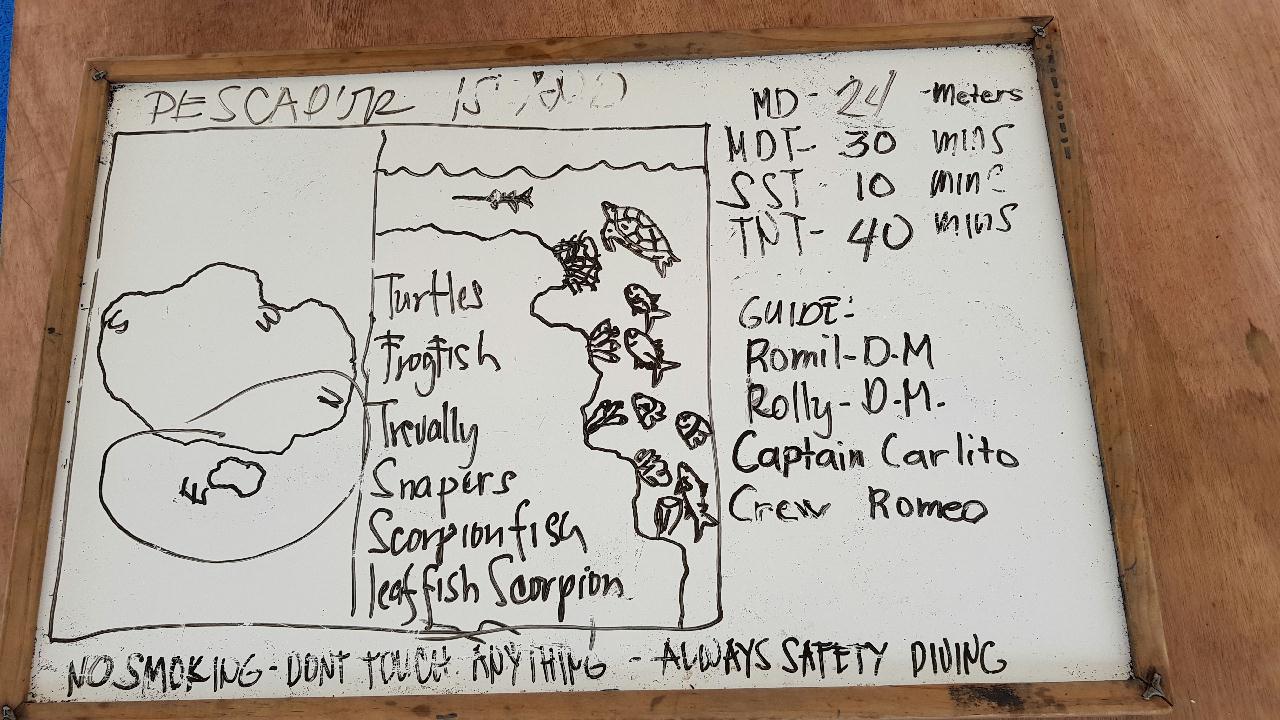 PESCAD'JR IS
MD- 24 -Meters
MDT- 30 mins
SST- 10 mins
TNT- 40 mins
Turtles
Frogfish
Trevally
Snapers
Scorpionfish
leaffish Scorpion
GUIDE:
Romil-D.M
Rolly-D.M.
Captain Carlito
Crew Romeo
NO SMOKING-DONT TOUCH ANYTHING - ALWAYS SAFETY DIVING